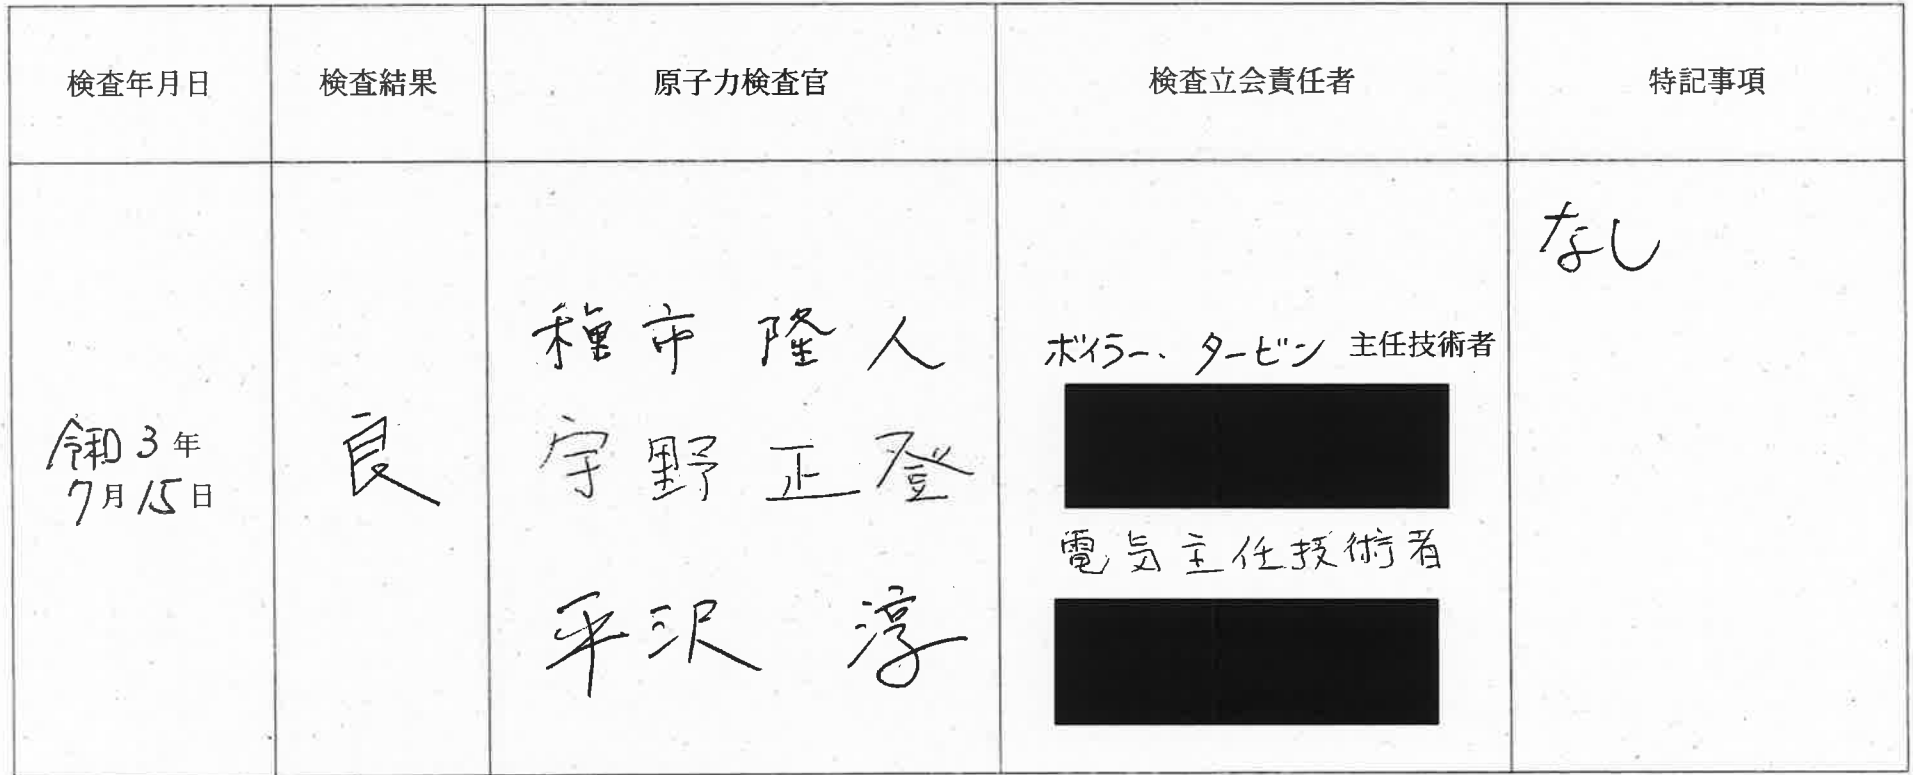 検査年月日
検査結果
原子力検査官
検査立会責任者
特記事項
令和3年
7月15日
良
種市 隆人
宇野 正登
平沢 淳
ボイラー・タービン 主任技術者
電気主任技術者
なし